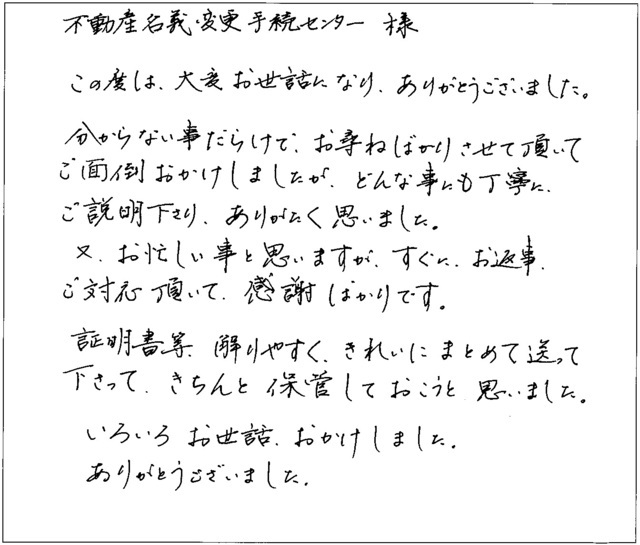 不動産名義変更手続センター 様
この度は、大変お世話になり、ありがとうございました。
分からない事だらけで、お尋ねばかりさせて頂いて
ご面倒おかけしましたが、どんな事にも丁寧に、
ご説明下さり、ありがたく思いました。
又、お忙しい事と思いますが、すぐに、お返事、
ご対応頂いて、感謝ばかりです。
証明書等、解りやすく、きれいにまとめて送って
下さって、きちんと保管しておこうと思いました。
いろいろお世話、おかけしました。
ありがとうございました。